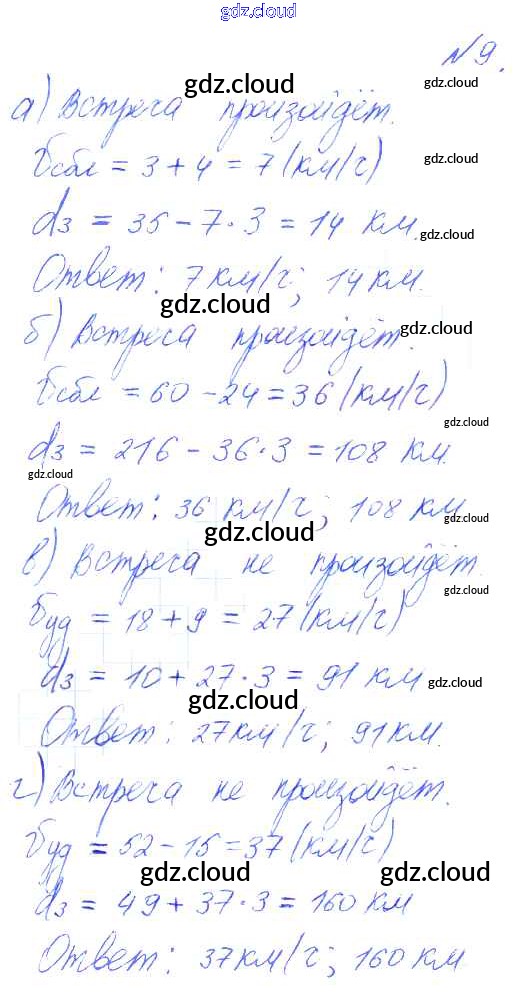 gdz.cloud
№9.
а) Встреча произойдёт.
gdz.cloud
gdz.cloud
Vсбл = 3 + 4 = 7 (км/ч)
gdz.cloud
d3 = 35 - 7 · 3 = 14 км.
gdz.cloud
Ответ: 7 км/ч; 14 км.
gdz.cloud
б) Встреча произойдёт.
gdz.cloud
Vсбл = 60 - 24 = 36 (км/ч)
gdz.cloud
d3 = 216 - 36 · 3 = 108 км.
gdz.cloud
Ответ: 36 км/ч; 108 км
gdz.cloud
gdz.cloud
в) Встреча не произойдёт.
gdz.cloud
Vуд = 18 + 9 = 27 (км/ч)
d3 = 10 + 27 · 3 = 91 км
gdz.cloud
gdz.cloud
Ответ: 27 км/ч; 91 км.
г) Встреча не произойдёт.
Vуд = 52 - 15 = 37 (км/ч)
gdz.cloud
gdz.cloud
d3 = 49 + 37 · 3 = 160 км
Ответ: 37 км/ч; 160 км